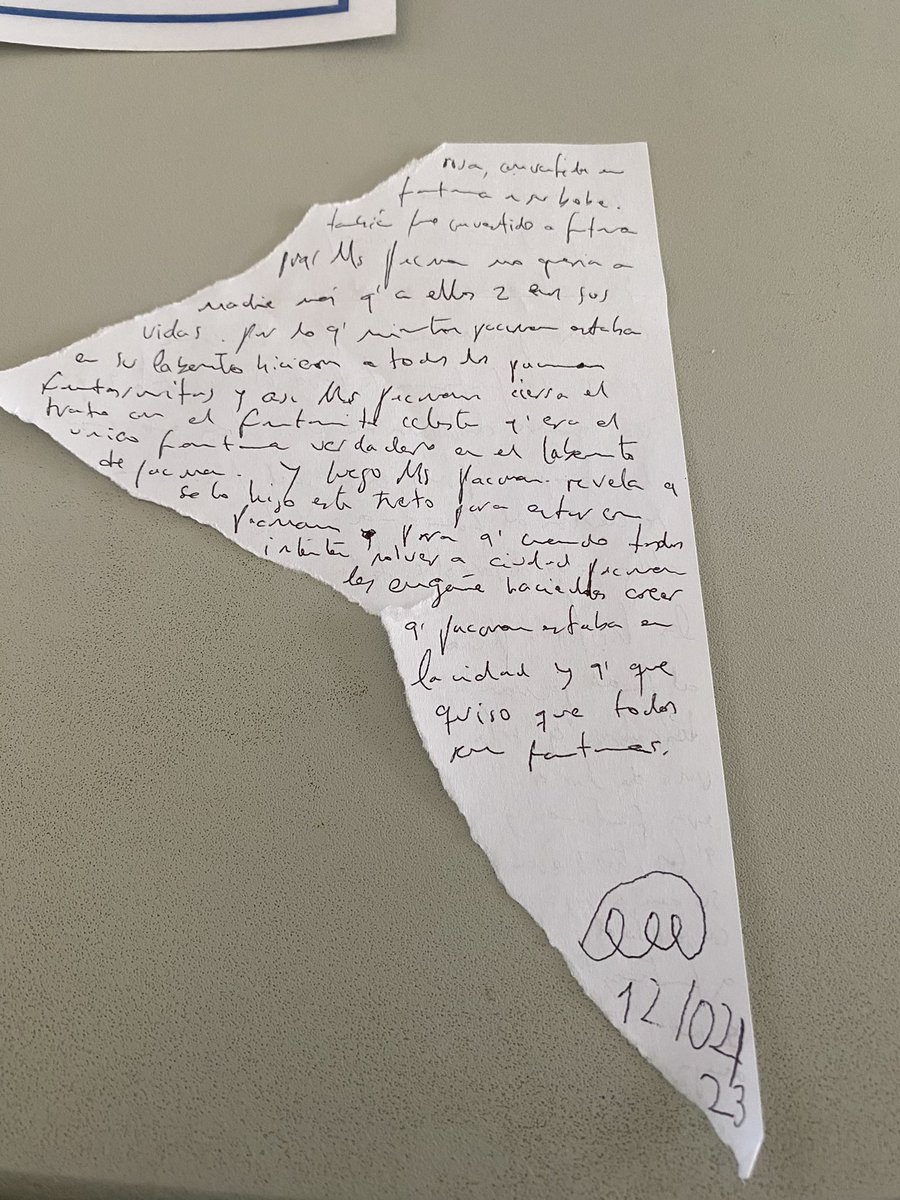 rosa, convertida en
fantasma a su bebe.
también fue convertido a
porq Ms pacman no queria a
nadie más q' a ellos 2 en sus
vidas. por lo q' mientras pacman estaba
en su laberinto hicieron a todos los pacman
fantasmitas y así Ms pacman cierra el
trato con el fantasmita celeste q' era el
único fantasma verdadero en el laberinto
de pacman. Y luego Ms pacman revela q
se lo hizo este trato para estar con
pacman y para q' cuando todos
intenten volver a ciudad pacman
les engañe haciendoles creer
q' pacman estaba en
la cidad y q' que
quiso que todos
sean fantasmas.
12/04
23